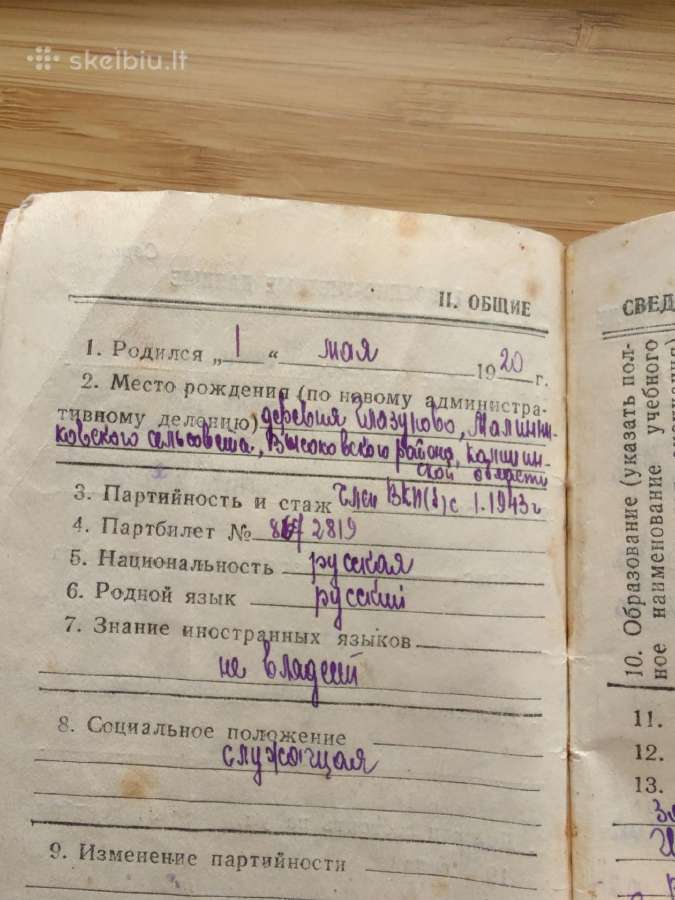 skelbiu.lt
II. ОБЩИЕ
1. Родился „ 1 “ мая 1920 г.
2. Место рождения (по новому администра-
тивному делению) деревня Глазуново, Малинни-
ковского сельсовета, Высоковского района, Калинин-
ской области
3. Партийность и стаж член ВКП(б) с 1.1943 г
4. Партбилет № 2819
5. Национальность русская
6. Родной язык русский
7. Знание иностранных языков
не владеет
8. Социальное положение
служащая
9. Изменение партийности
СВЕД
10. Образование (указать пол-
ное наименование учебного
11.
12.
13.